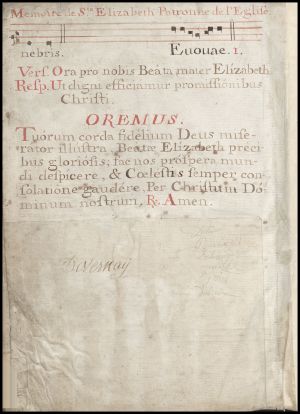 Memoire de S.te Elizabeth Patronne de l'Eglise.
nebris. Euouae. 1.
Vers. Ora pro nobis Beata mater Elizabeth
Resp. Ut digni efficiamur promissionibus
Christi.
OREMUS.
Tuorum corda fidelium Deus mise-
rator illustra, Beatæ Elizabeth preci-
bus gloriosis; fac nos prospera mun-
di despicere, & Cœlesti semper con-
solatione gaudére, Per Christum Dó-
minum nostrum, R. Amen.